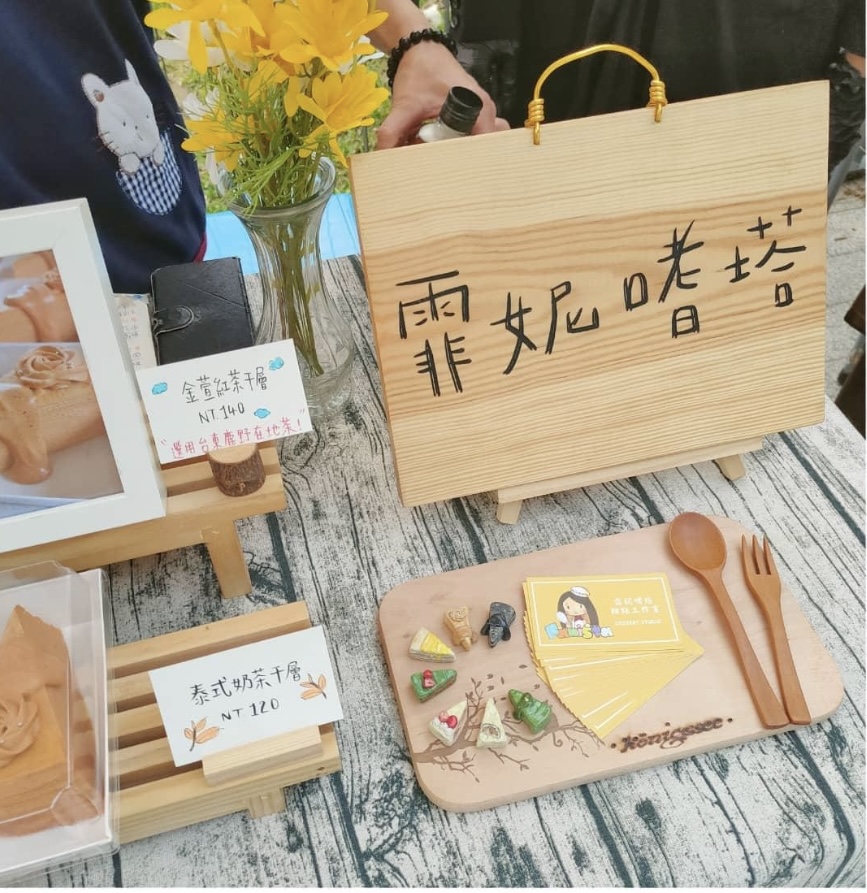 霏妮喳塔
金萱紅茶千層
NT.140
"選用台東鹿野在地茶!"
泰式奶茶千層
NT 120
甜點工作室
DESSERT STUDIO
Königssee